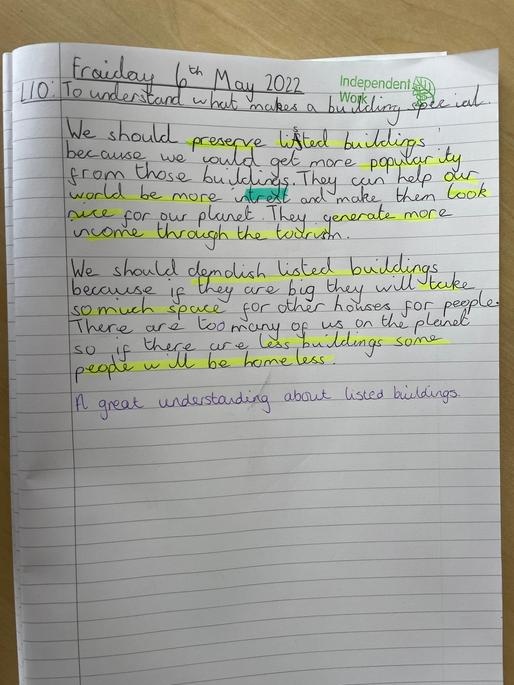 Fraiday 6th May 2022
Independent Work
LIO: To understand what makes a building special.
We should preserve listed buildings
because we would get more popularity
from those buildings. They can help our
world be more intrest and make them look
nice for our planet. They generate more
income through the tourism.
We should demolish listed buildings
because if they are big they will take
so much space for other houses for people.
There are too many of us on the planet
so if there are less buildings some
people will be homeless.
A great understanding about listed buildings.